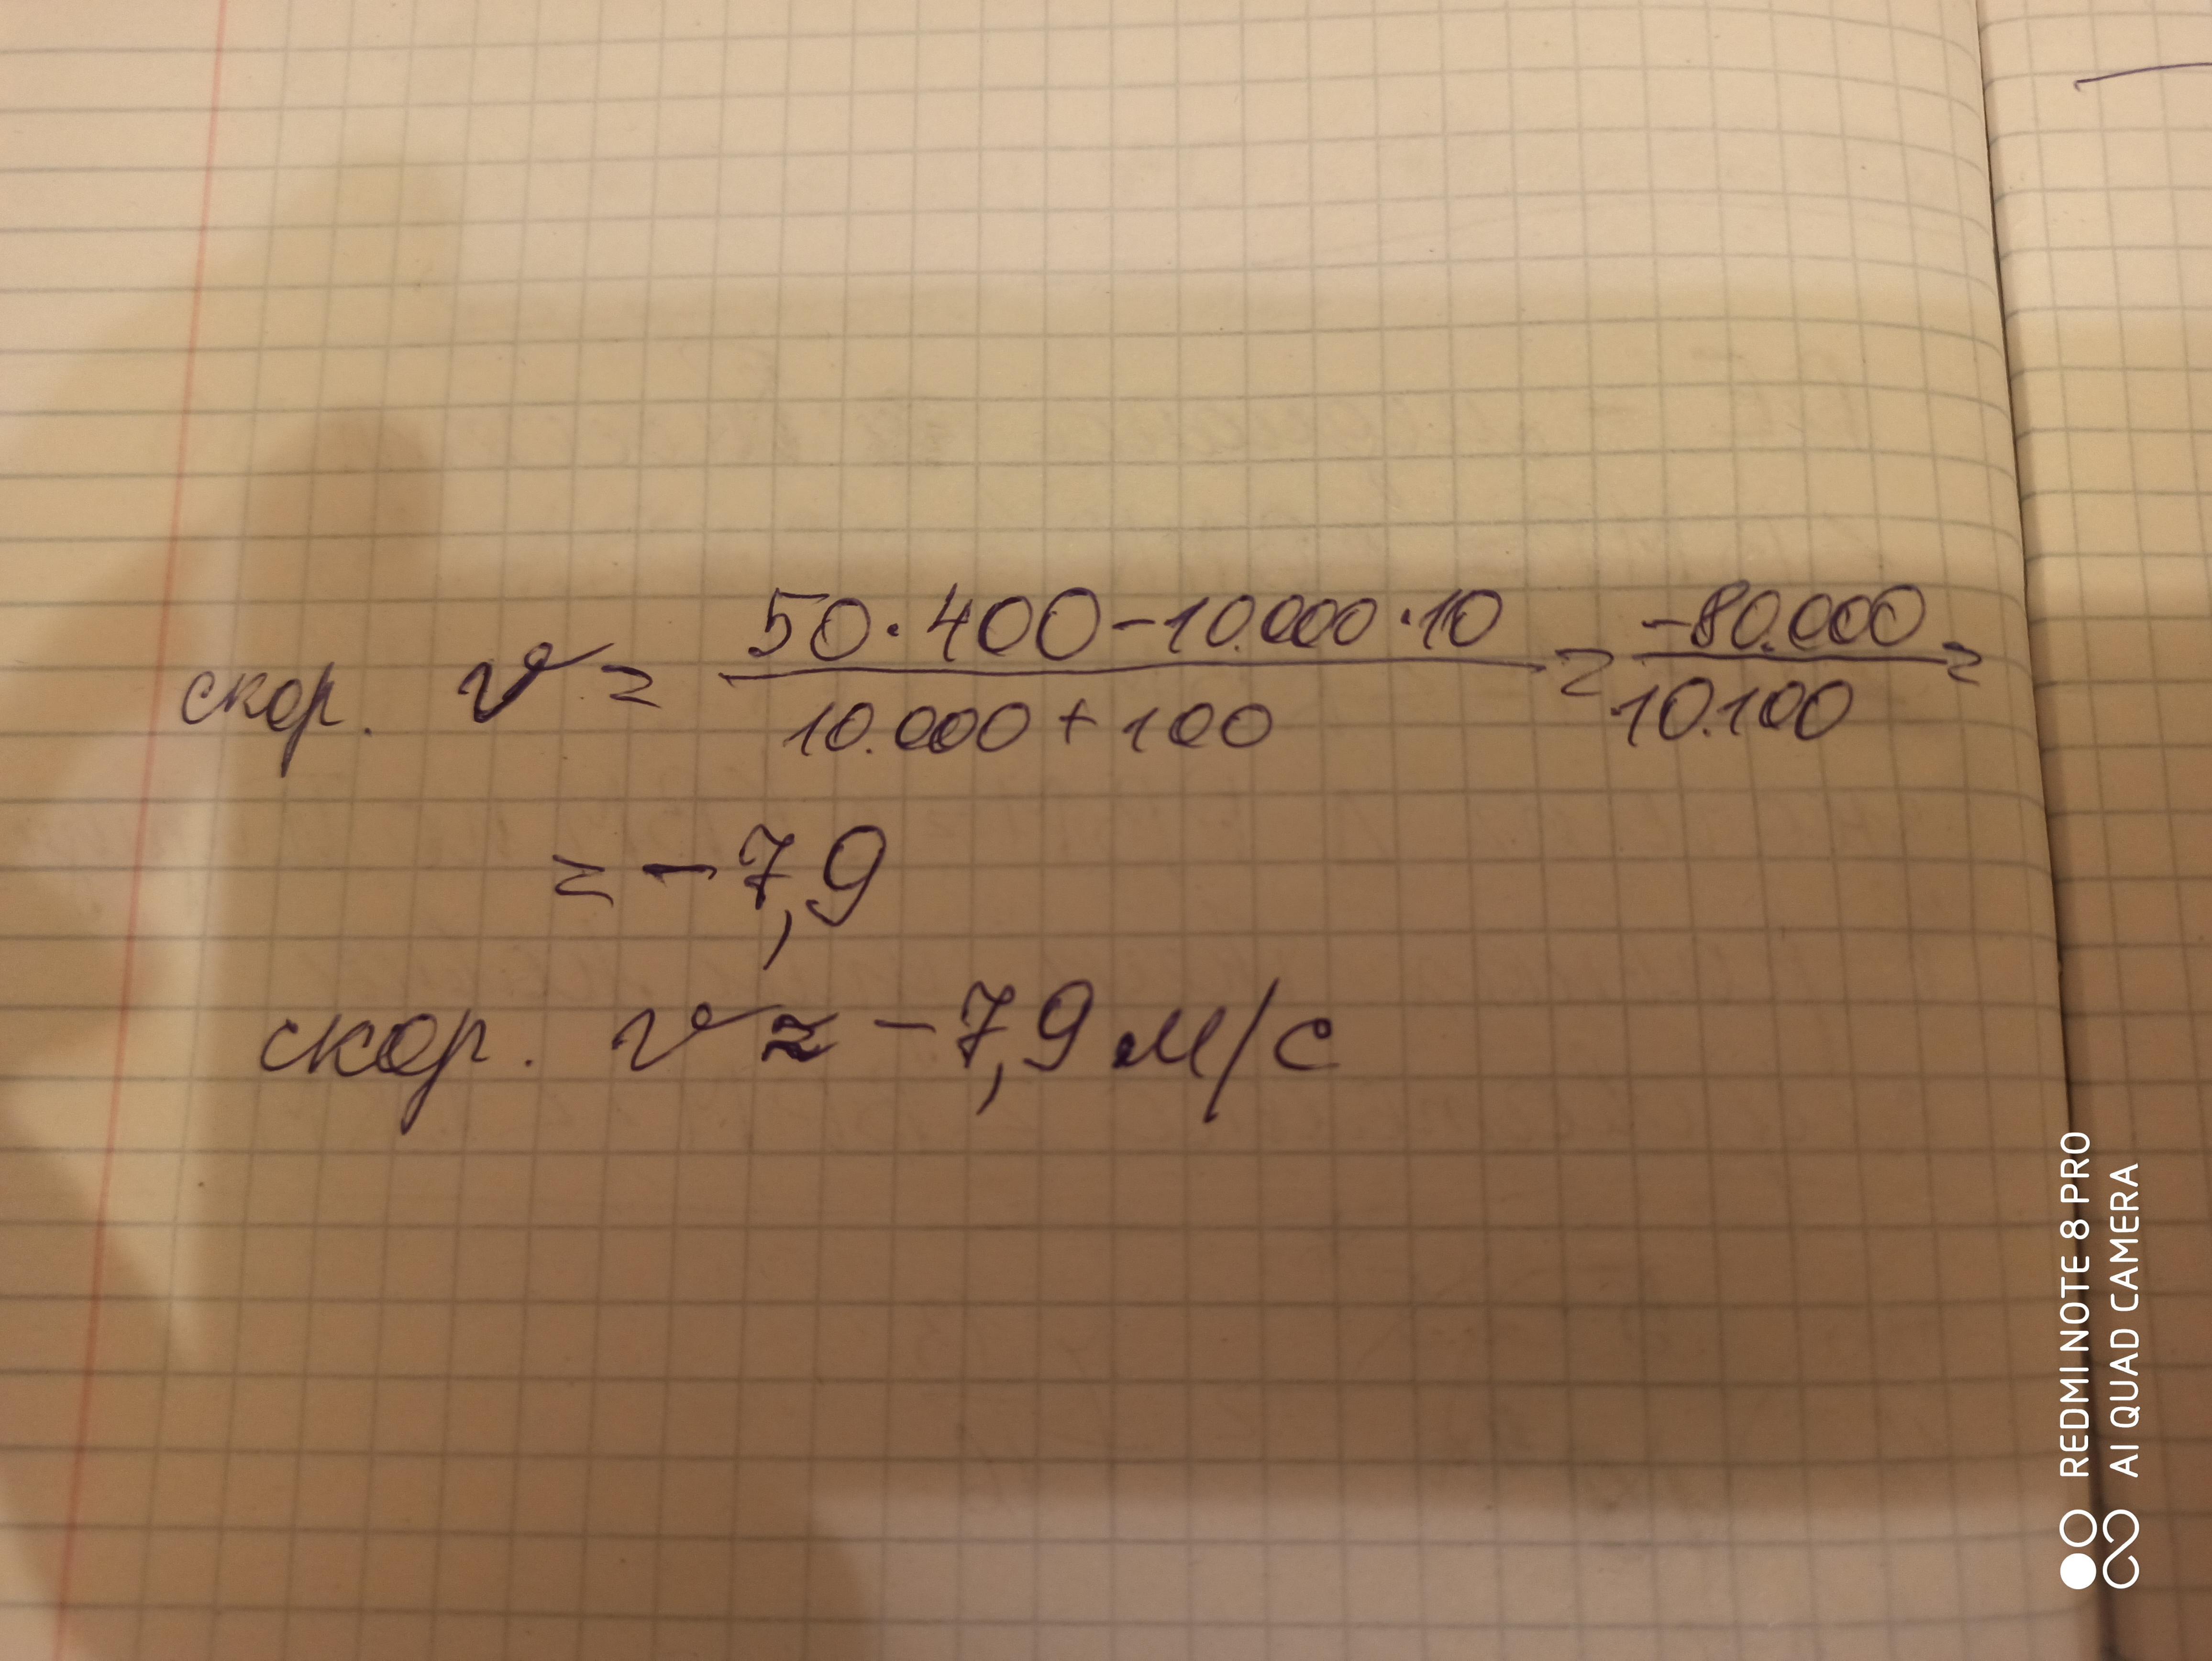 скор. v = (50·400-10.000·10)/(10.000+100) = -80.000/10.100 =
= -7,9
скор. v ≈ -7,9 м/с
REDMI NOTE 8 PRO
AI QUAD CAMERA